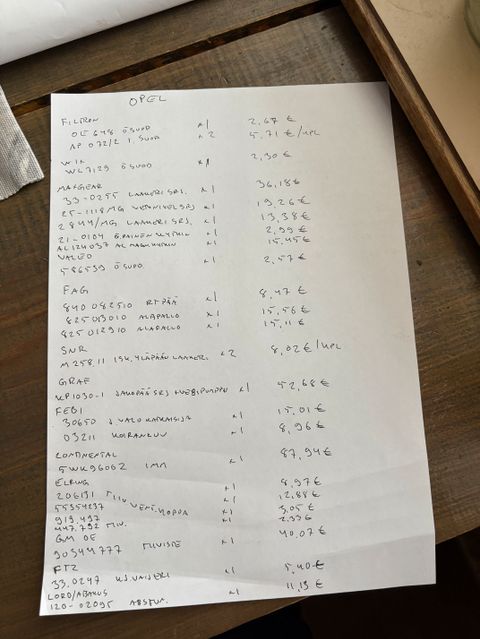 OPEL
FILTRON
OE 648 ÖSUOD x1 2,67 €
AP 072/2 I. SUOD x2 5,71 €/KPL
WIX
WL7129 ÖSUOD x1 2,30 €
MAXGEAR
33-0255 LAAKERI SRJ. x1 36,18 €
25-1118MG x1 19,26 €
2844/MG LAAKERI SRJ. x1 13,38 €
21-0104 x1 2,99 €
x1 15,45 €
VALEO
586539 ÖSUOD. x1 2,57 €
FAG
840 0825 10 RT PÄÄ x1 8,47 €
825013010 ALAPALLO x1 15,56 €
825 0129 10 ALAPALLO x1 15,11 €
SNR
M258.11 ISK. YLÄPÄÄN LAAKERI x2 8,02 €/KPL
GRAF
KP1030-1 JAKOPÄÄ SRJ + VESIPUMPPU x1 52,68 €
FEBI
30650 J. VALO KATKAISIJA x1 15,01 €
03211 KOIRANLUU x1 8,96 €
CONTINENTAL
5WK96062 IMM x1 87,94 €
ELRING
206131 TIIV x1 8,97 €
55354237 VENT. KOPPA x1 12,88 €
919.497 x1 3,05 €
447.792 TIIV. x1 2,33 €
GM OE
90344777 TIIVISTE x1 40,07 €
FTZ
33.0247 x1 5,40 €
LORO/ABAKUS
120-02095 x1 11,13 €